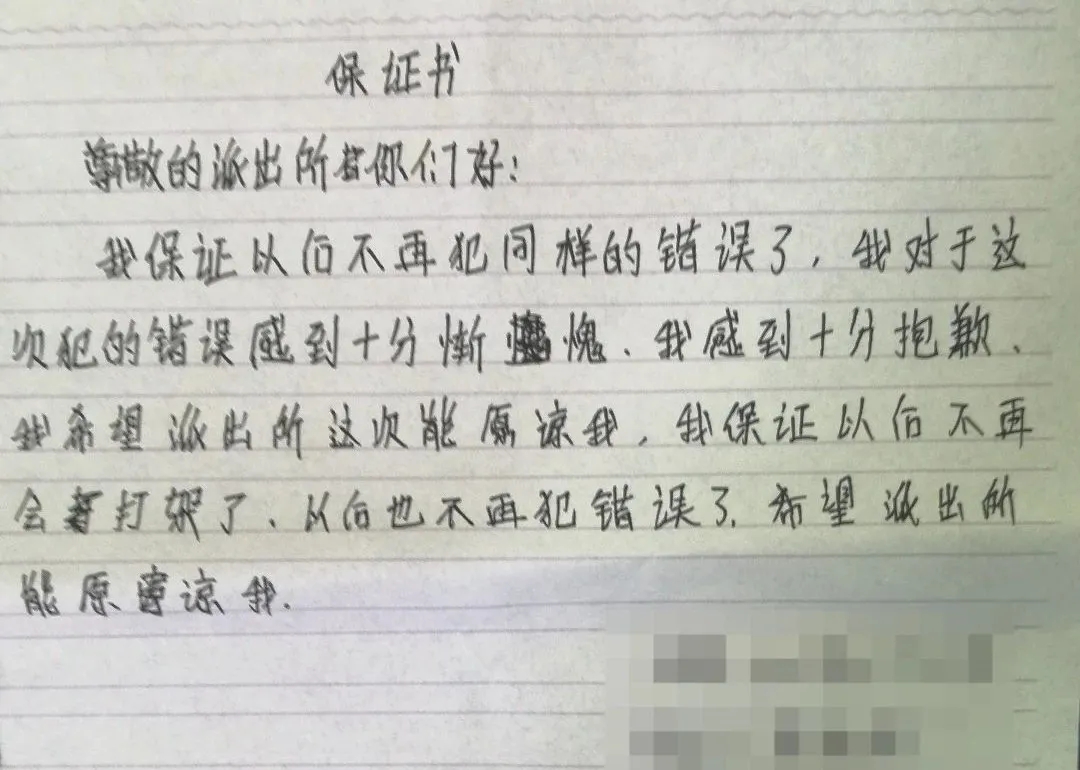 保证书
尊敬的派出所你们好：
我保证以后不再犯同样的错误了，我对于这
次犯的错误感到十分惭愧、我感到十分抱歉、
我希望派出所这次能原谅我，我保证以后不再
会打架了、以后也不再犯错误了，希望派出所
能原谅我.